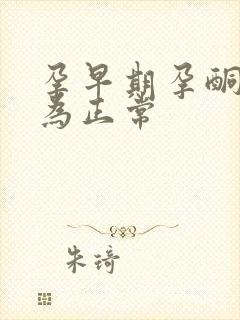 孕早期孕酮
為正常
朱琦